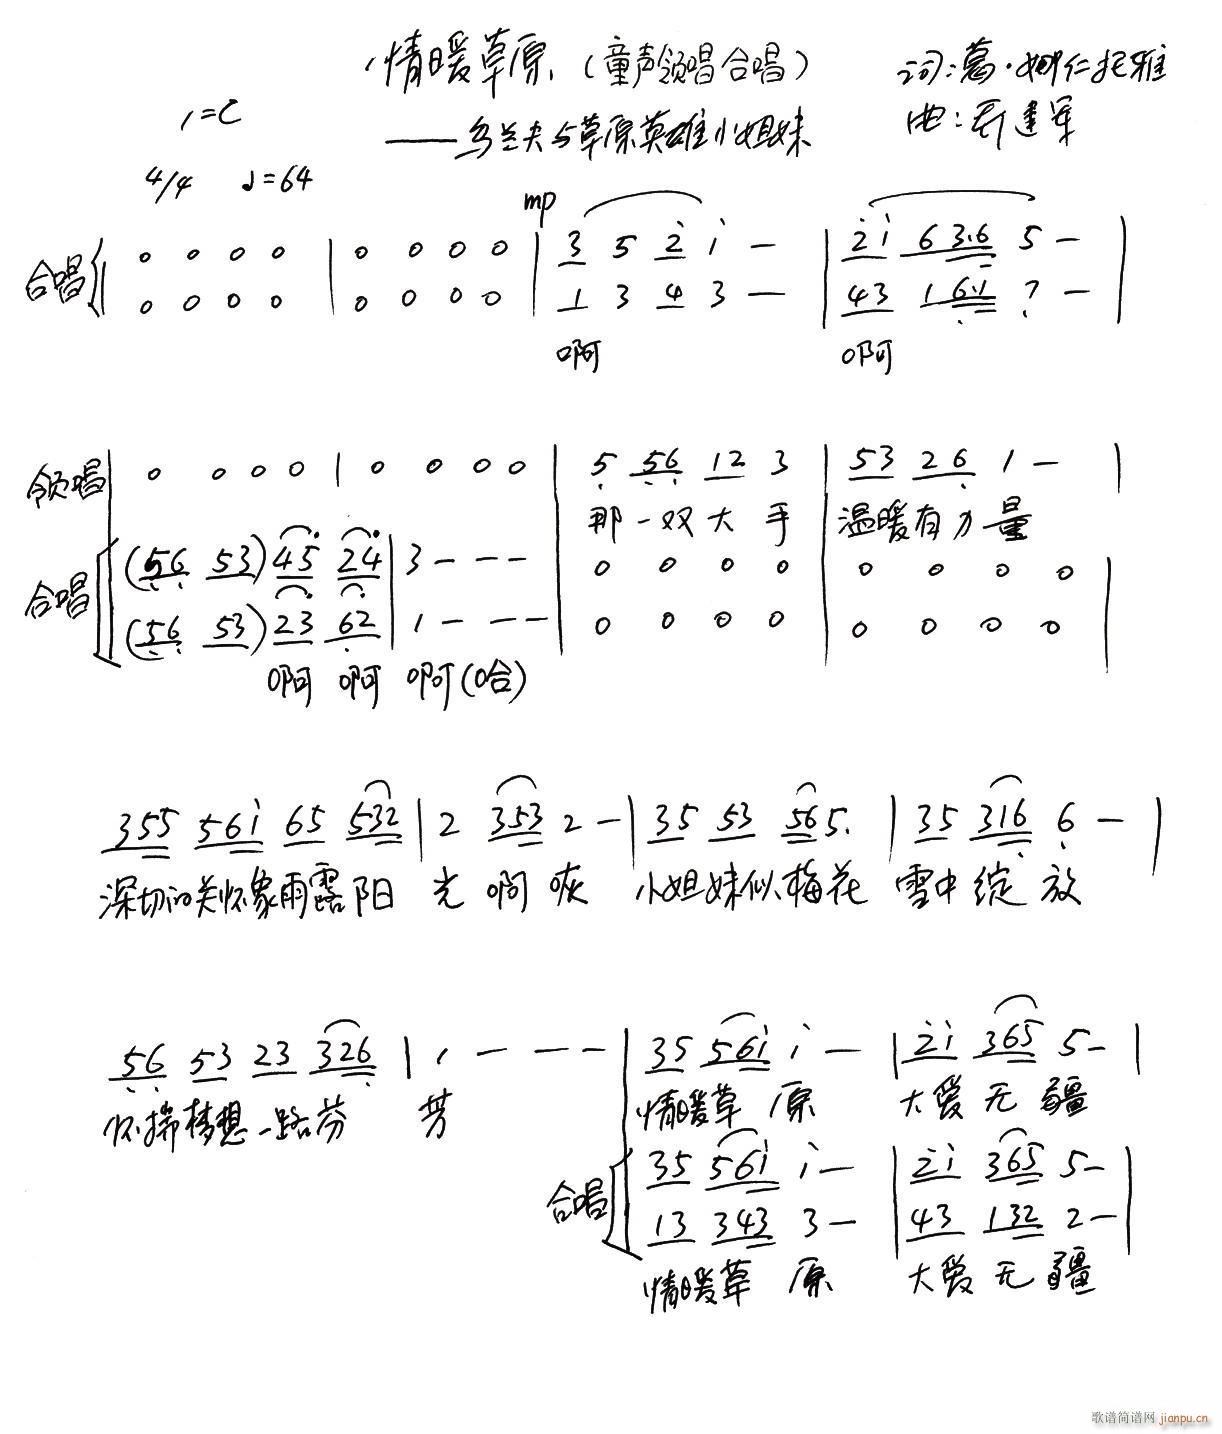 情暖草原（童声领唱合唱）
——乌兰夫与草原英雄小姐妹
词：葛·娜仁托雅
曲：乔建军
1=C
4/4 ♩=64
mp
合唱 0 0 0 0 | 0 0 0 0 | 3 5 2 1 — | 2 1 6 3.6 5 — |
0 0 0 0 | 0 0 0 0 | 1 3 4 3 — | 4 3 1 6.1 7 — |
啊 啊
领唱 0 0 0 0 | 0 0 0 0 | 5 5 6 1 2 3 | 5 3 2 6 1 — |
那一双大手 温暖有力量
合唱 (5 6 5 3) 4 5 2 4 | 3 — — — | 0 0 0 0 | 0 0 0 0 |
(5 6 5 3) 2 3 6 2 | 1 — — — | 0 0 0 0 | 0 0 0 0 |
啊 啊 啊(哈)
3 5 5 5 6 1 6 5 5 3 2 | 2 3 5 3 2 — | 3 5 5 3 5 6 5. | 3 5 3 1 6 6 — |
深切的关怀象雨露阳 光 啊 咴 小姐妹似梅花 雪中绽 放
5 6 5 3 2 3 3 2 6 | 1 — — — | 3 5 5 6 1 1 — | 2 1 3 6 5 5 — |
怀揣梦想一路芬 芳 情暖草 原 大爱无 疆
合唱 3 5 5 6 1 1 — | 2 1 3 6 5 5 — |
1 3 3 4 3 3 — | 4 3 1 3 2 2 — |
情暖草 原 大爱无 疆
歌谱简谱网 jianpu.cn